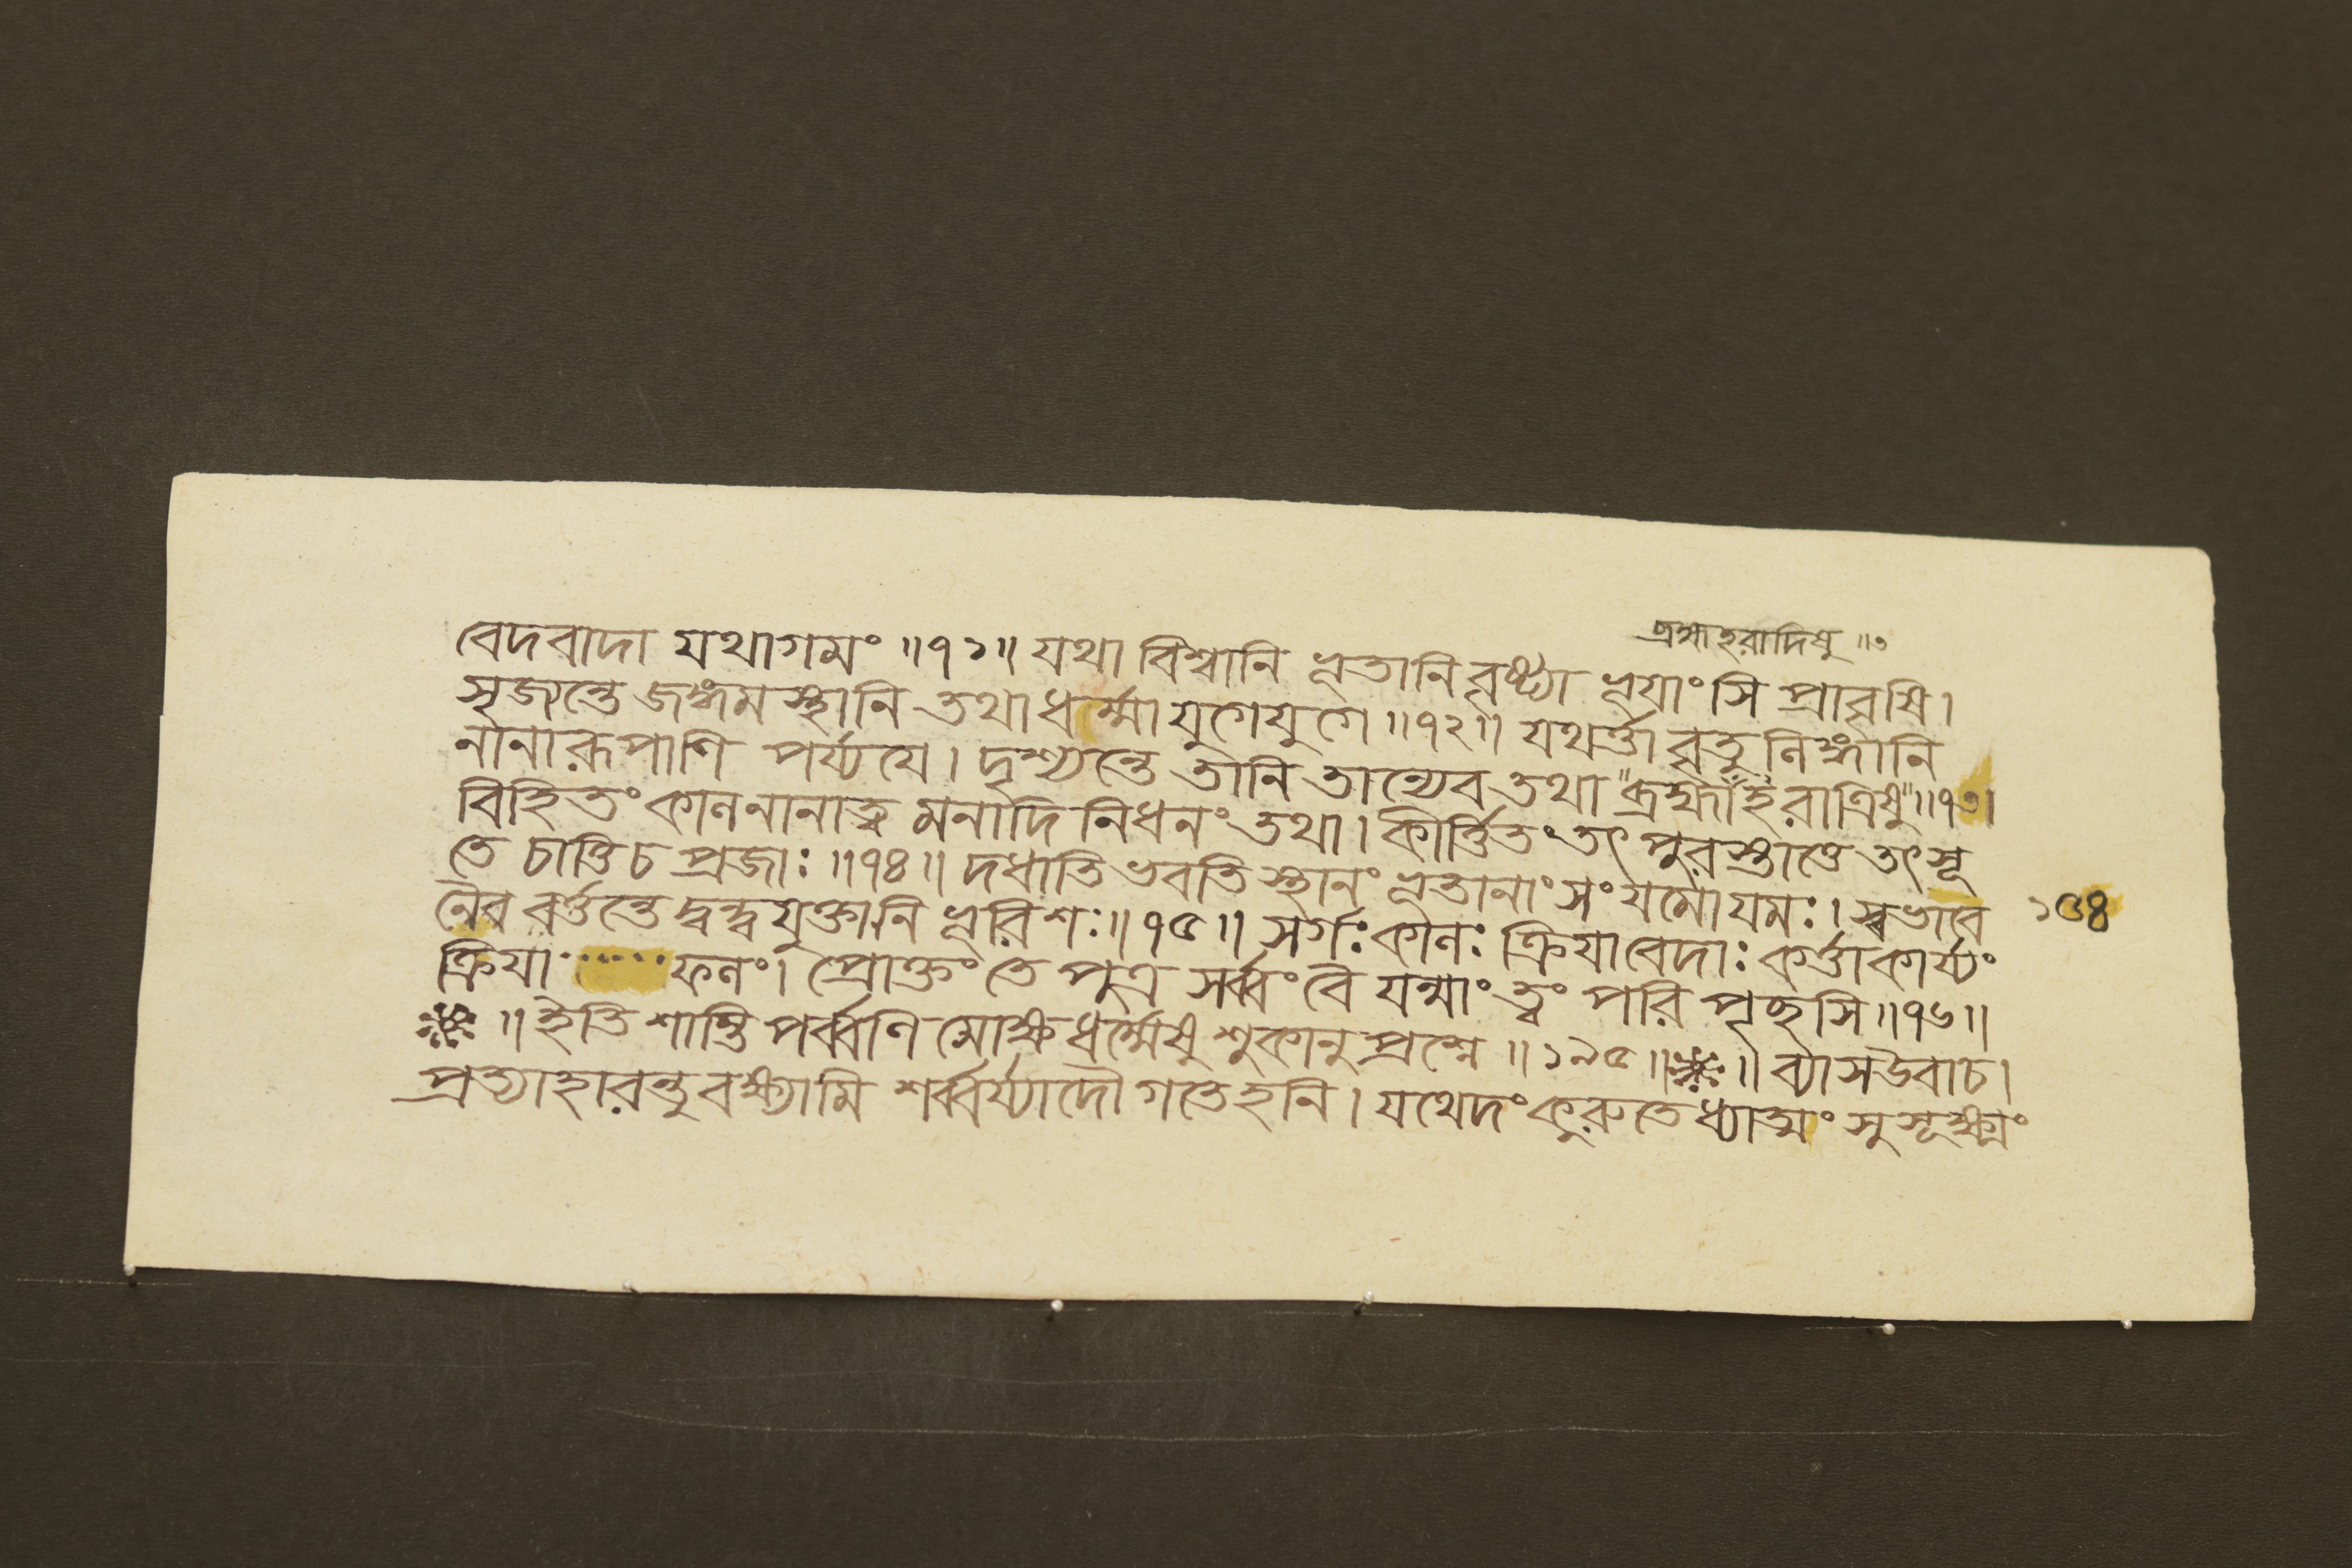 ব্রহ্মাহরাদিষু ॥৩
বেদবাদা যথাগমং ॥৭১॥ যথা বিশ্বানি ভূতানি বৃষ্ট্যা ভূয়াংসি প্রাবৃষি।
সৃজ্যন্তে জঙ্গমস্থানি তথা ধর্ম্মা যুগেযুগে ॥৭২॥ যথর্ত্তাবৃতু লিঙ্গানি
নানারূপাণি পর্য্যযে। দৃশ্যন্তে তানি তান্যেব তথা "ব্রহ্মাহরাত্রিষু" ॥৭৩।
বিহিতং কালনানাত্ব মনাদি নিধনং তথা। কীর্ত্তিতং তৎ পুরস্তাত্তে তৎসূ
তে চাত্তি চ প্রজাঃ ॥৭৪॥ দধাতি ভবতি স্থানং ভূতানাং সংযমোযমঃ। স্বভাবে
১৩৪
নৈব বর্ত্তন্তে দ্বন্দ্বযুক্তানি ভূরিশঃ॥৭৫॥ সর্গঃকালঃ ক্রিযাবেদাঃ কর্ত্তাকার্য্যং
ক্রিযা ······ ফলং। প্রোক্তং তে পুত্র সর্ব্বং বৈ যন্মাং ত্বং পরি পৃচ্ছসি ॥৭৬॥
॥ ইতি শান্তি পর্ব্বণি মোক্ষধর্ম্মেষু শুকানুপ্রশ্নে ॥ ১৯৫ ॥ ॥ ব্যাসউবাচ।
প্রত্যাহারন্তু বক্ষ্যামি শর্ব্বর্য্যাদৌ গতেহনি। যথেদং কুরুতেধ্যাত্মং সুসূক্ষ্মং